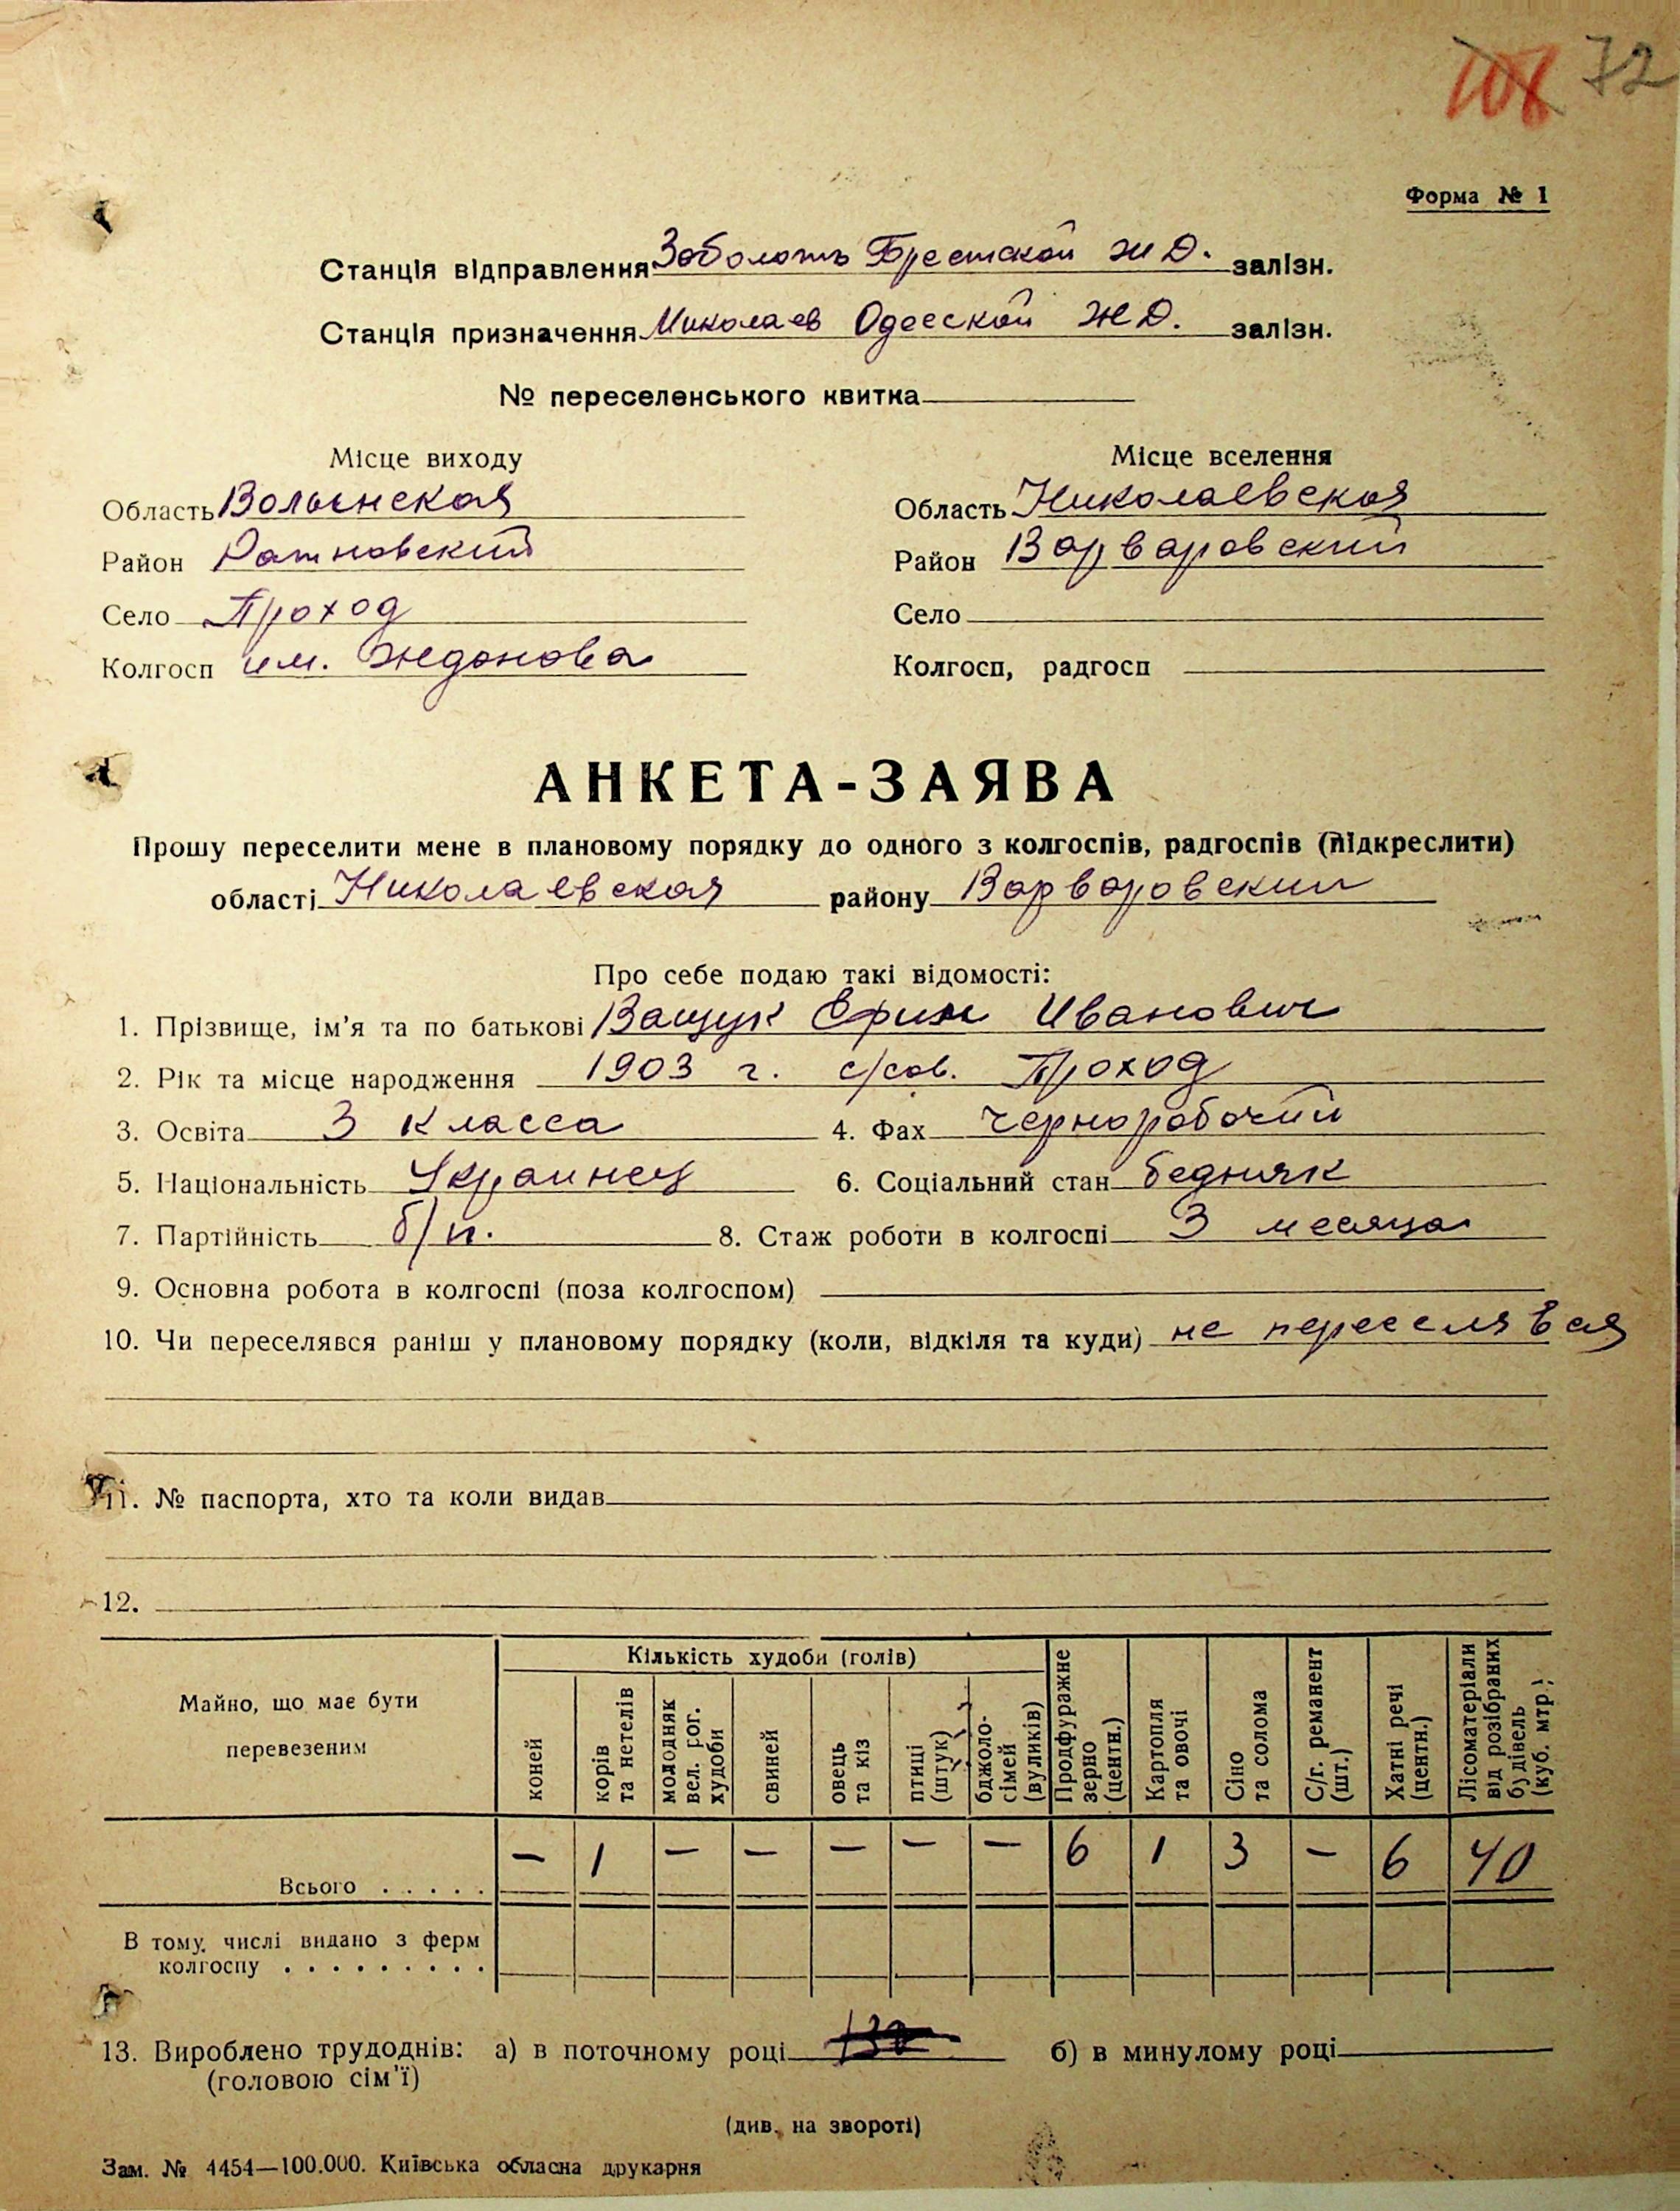 108 72
Форма № 1
Станція відправлення Заболоть Брестской ж Д. залізн.
Станція призначення Николаев Одесской ЖД. залізн.
№ переселенського квитка
Місце виходу Місце вселення
Область Волынская Область Николаевская
Район Ратновский Район Варваровский
Село Проход Село
Колгосп им. Жданова Колгосп, радгосп
АНКЕТА-ЗАЯВА
Прошу переселити мене в плановому порядку до одного з колгоспів, радгоспів (підкреслити)
області Николаевская району Варваровский
Про себе подаю такі відомості:
1. Прізвище, ім'я та по батькові Ващук Ефим Иванович
2. Рік та місце народження 1903 г. с/сов. Проход
3. Освіта 3 класса 4. Фах Чернорабочий
5. Національність Украинец 6. Соціальний стан бедняк
7. Партійність б/п. 8. Стаж роботи в колгоспі 3 месяца
9. Основна робота в колгоспі (поза колгоспом)
10. Чи переселявся раніш у плановому порядку (коли, відкіля та куди) не переселявся
11. № паспорта, хто та коли видав
12.
Майно, що має бути перевезеним
Кількість худоби (голів)
коней
корів та нетелів
молодняк вел. рог. худоби
свиней
овець та кіз
птиці (штук)
бджоло-сімей (вуликів)
Продфуражне зерно (центн.)
Картопля та овочі
Сіно та солома
С/г. реманент (шт.)
Хатні речі (центн.)
Лісоматеріали від розібраних будівель (куб. мтр.)
Всього . . . . . — 1 — — — — — 6 1 3 — 6 40
В тому числі видано з ферм
колгоспу . . . . . . . . .
13. Вироблено трудоднів: а) в поточному році б) в минулому році
(головою сім'ї)
(див. на звороті)
Зам. № 4454—100.000. Київська обласна друкарня